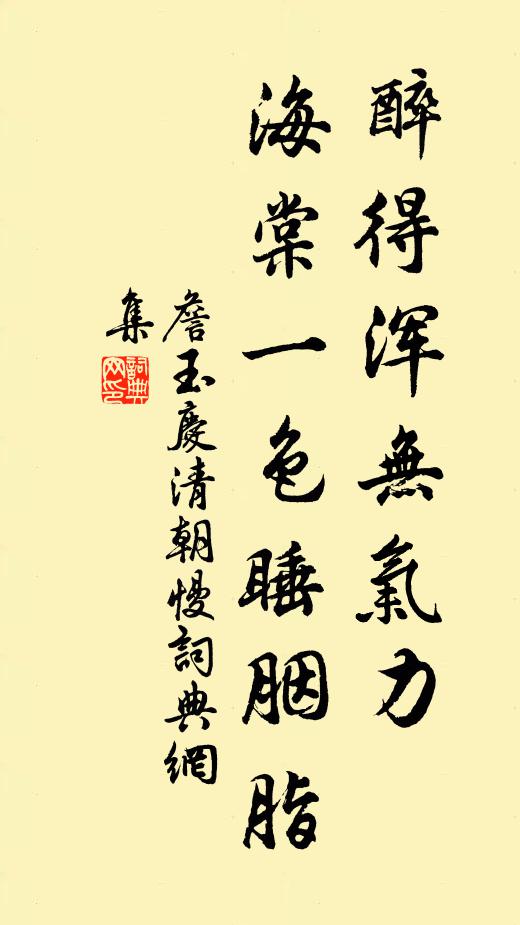 醉得浑無氣力
海棠一色睡胭脂
詹玉慶清朝慢詞典網
集
詞典
网印